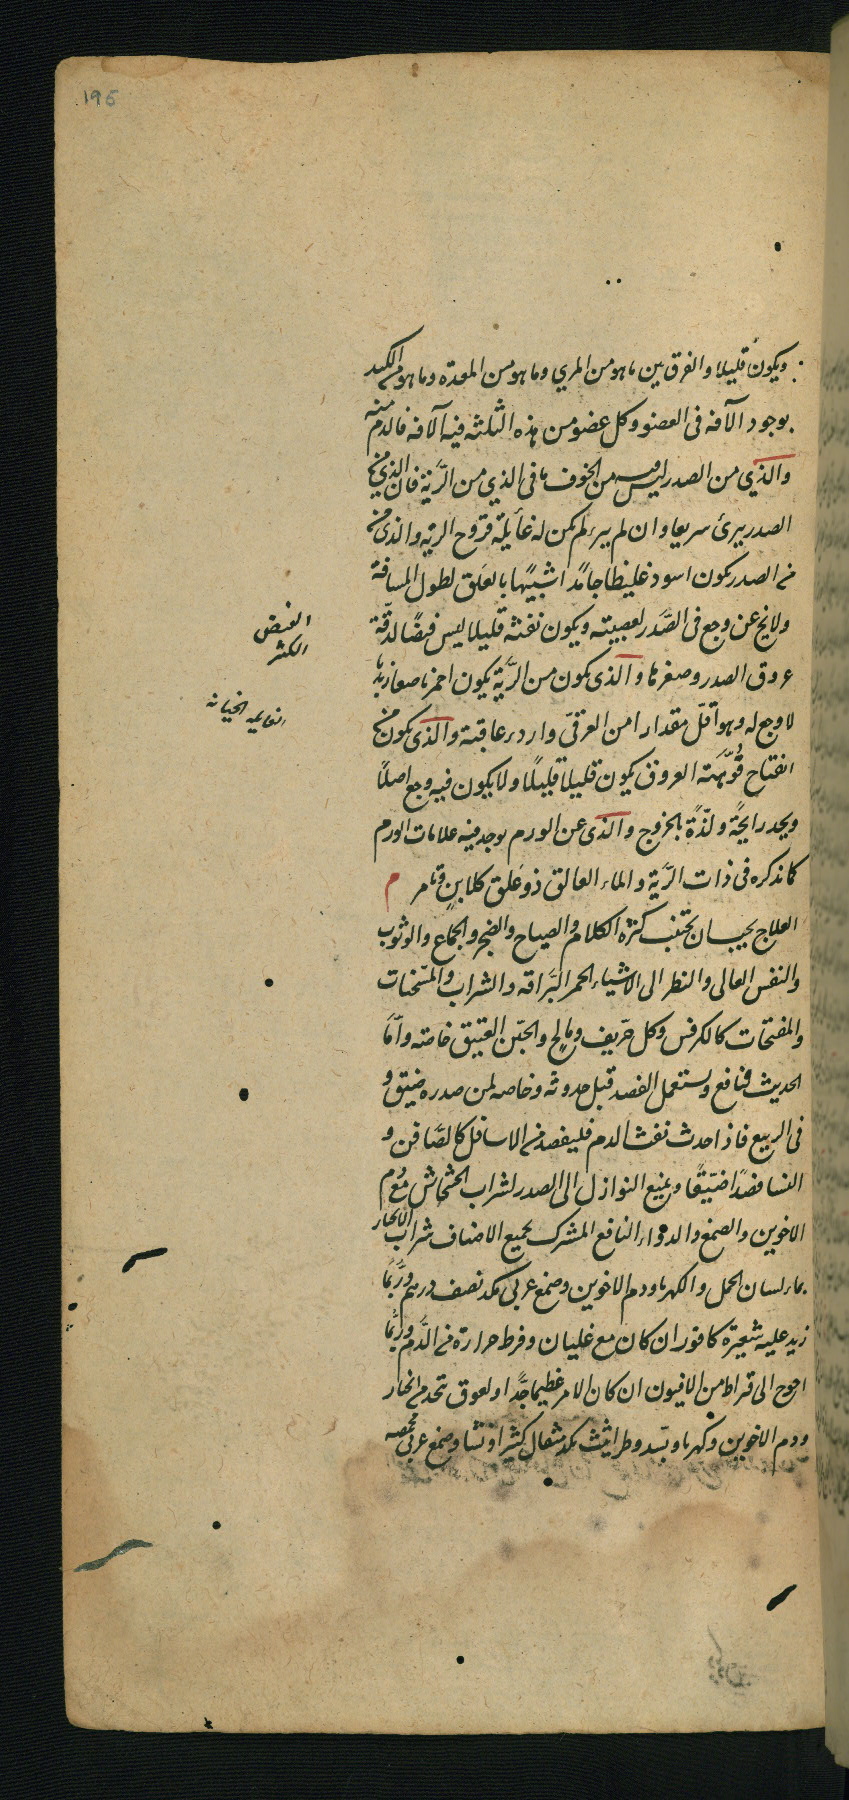 195
ويكون قليلا والفرق بين ما هو من المري وما هو من المعدة وما هو من الكبد
بوجود الآفه فى العضو وكل عضو من هذه الثلثه فيه آلافه فالدم منه
والذي من الصدر ليس فيه من الخوف ما فى الذي من الرَّية فان الذي من
الصدر يبرئ سريعا وان لم يبرء لم يكن له غايلة قروح الرية والذى من
الصدر يكون اسود غليظا جامدًا شبيهًا بالعلق لطول المسافة
ولا يخ عن وجع فى الصَّدر لعصبيته ويكون نفثه قليلا ليس فيضًا لدقّة
عروق الصدر وصغرها والذى يكون من الرَّية يكون احمر ناصعا زبديا
لا وجع له وهو اقلّ مقدارا من العرقىّ واردء عاقبة والذى يكون من
انفتاح فُوَّهة العروق يكون قليلا قليلًا ولا يكون فيه وجع اصلًا
ويجد رايحًة ولذّةً بالخروج والذى عن الورم يوجد فيه علامات الورم
كما نذكره فى ذات الرَّية والماء العالق ذو عَلق
العلاج يجب ان يجتنب كثرة الكلام والصياح والضجر والجماع والوثوب
والنفس العالى والنظر الى الاشياء الحمر البَراقه والشراب والمسخنات
والمفتحات كالكرفس وكل حَرّيف ومالح والجبن العتيق خاصته وأمّا
الحديث فنافع ويستعمل الفصد قبل حدوثه وخاصه لمن صدره ضيّق و
فى الربيع فاذا حدث نفث الدم فليفصد من الاسافل كالصَّافن و
النسا فصدًا ضيّقًا ويمنع النوازل الى الصدر لشراب الخشخاش مع دم
الاخوين والصمغ والدواء النافع المشترك لجميع الاصناف شراب
بماء لسان الحمل والكهربا ودم الاخوين وصمغ عربى مكد نصف درهم وربّما
زيد عليه شعيرة كافور ان كان مع غليان وفرط حرارة من الدَّم وربّما
احوج الى قيراط من الافيون ان كان الامر عظيما جدًّا او لعوق
ودم الاخوين وكهربا وبسّد وطراثيث مكد مثقال كثيرا ونشا وصمغ عربى
الفيض
الكثر
الغايله الخيانه